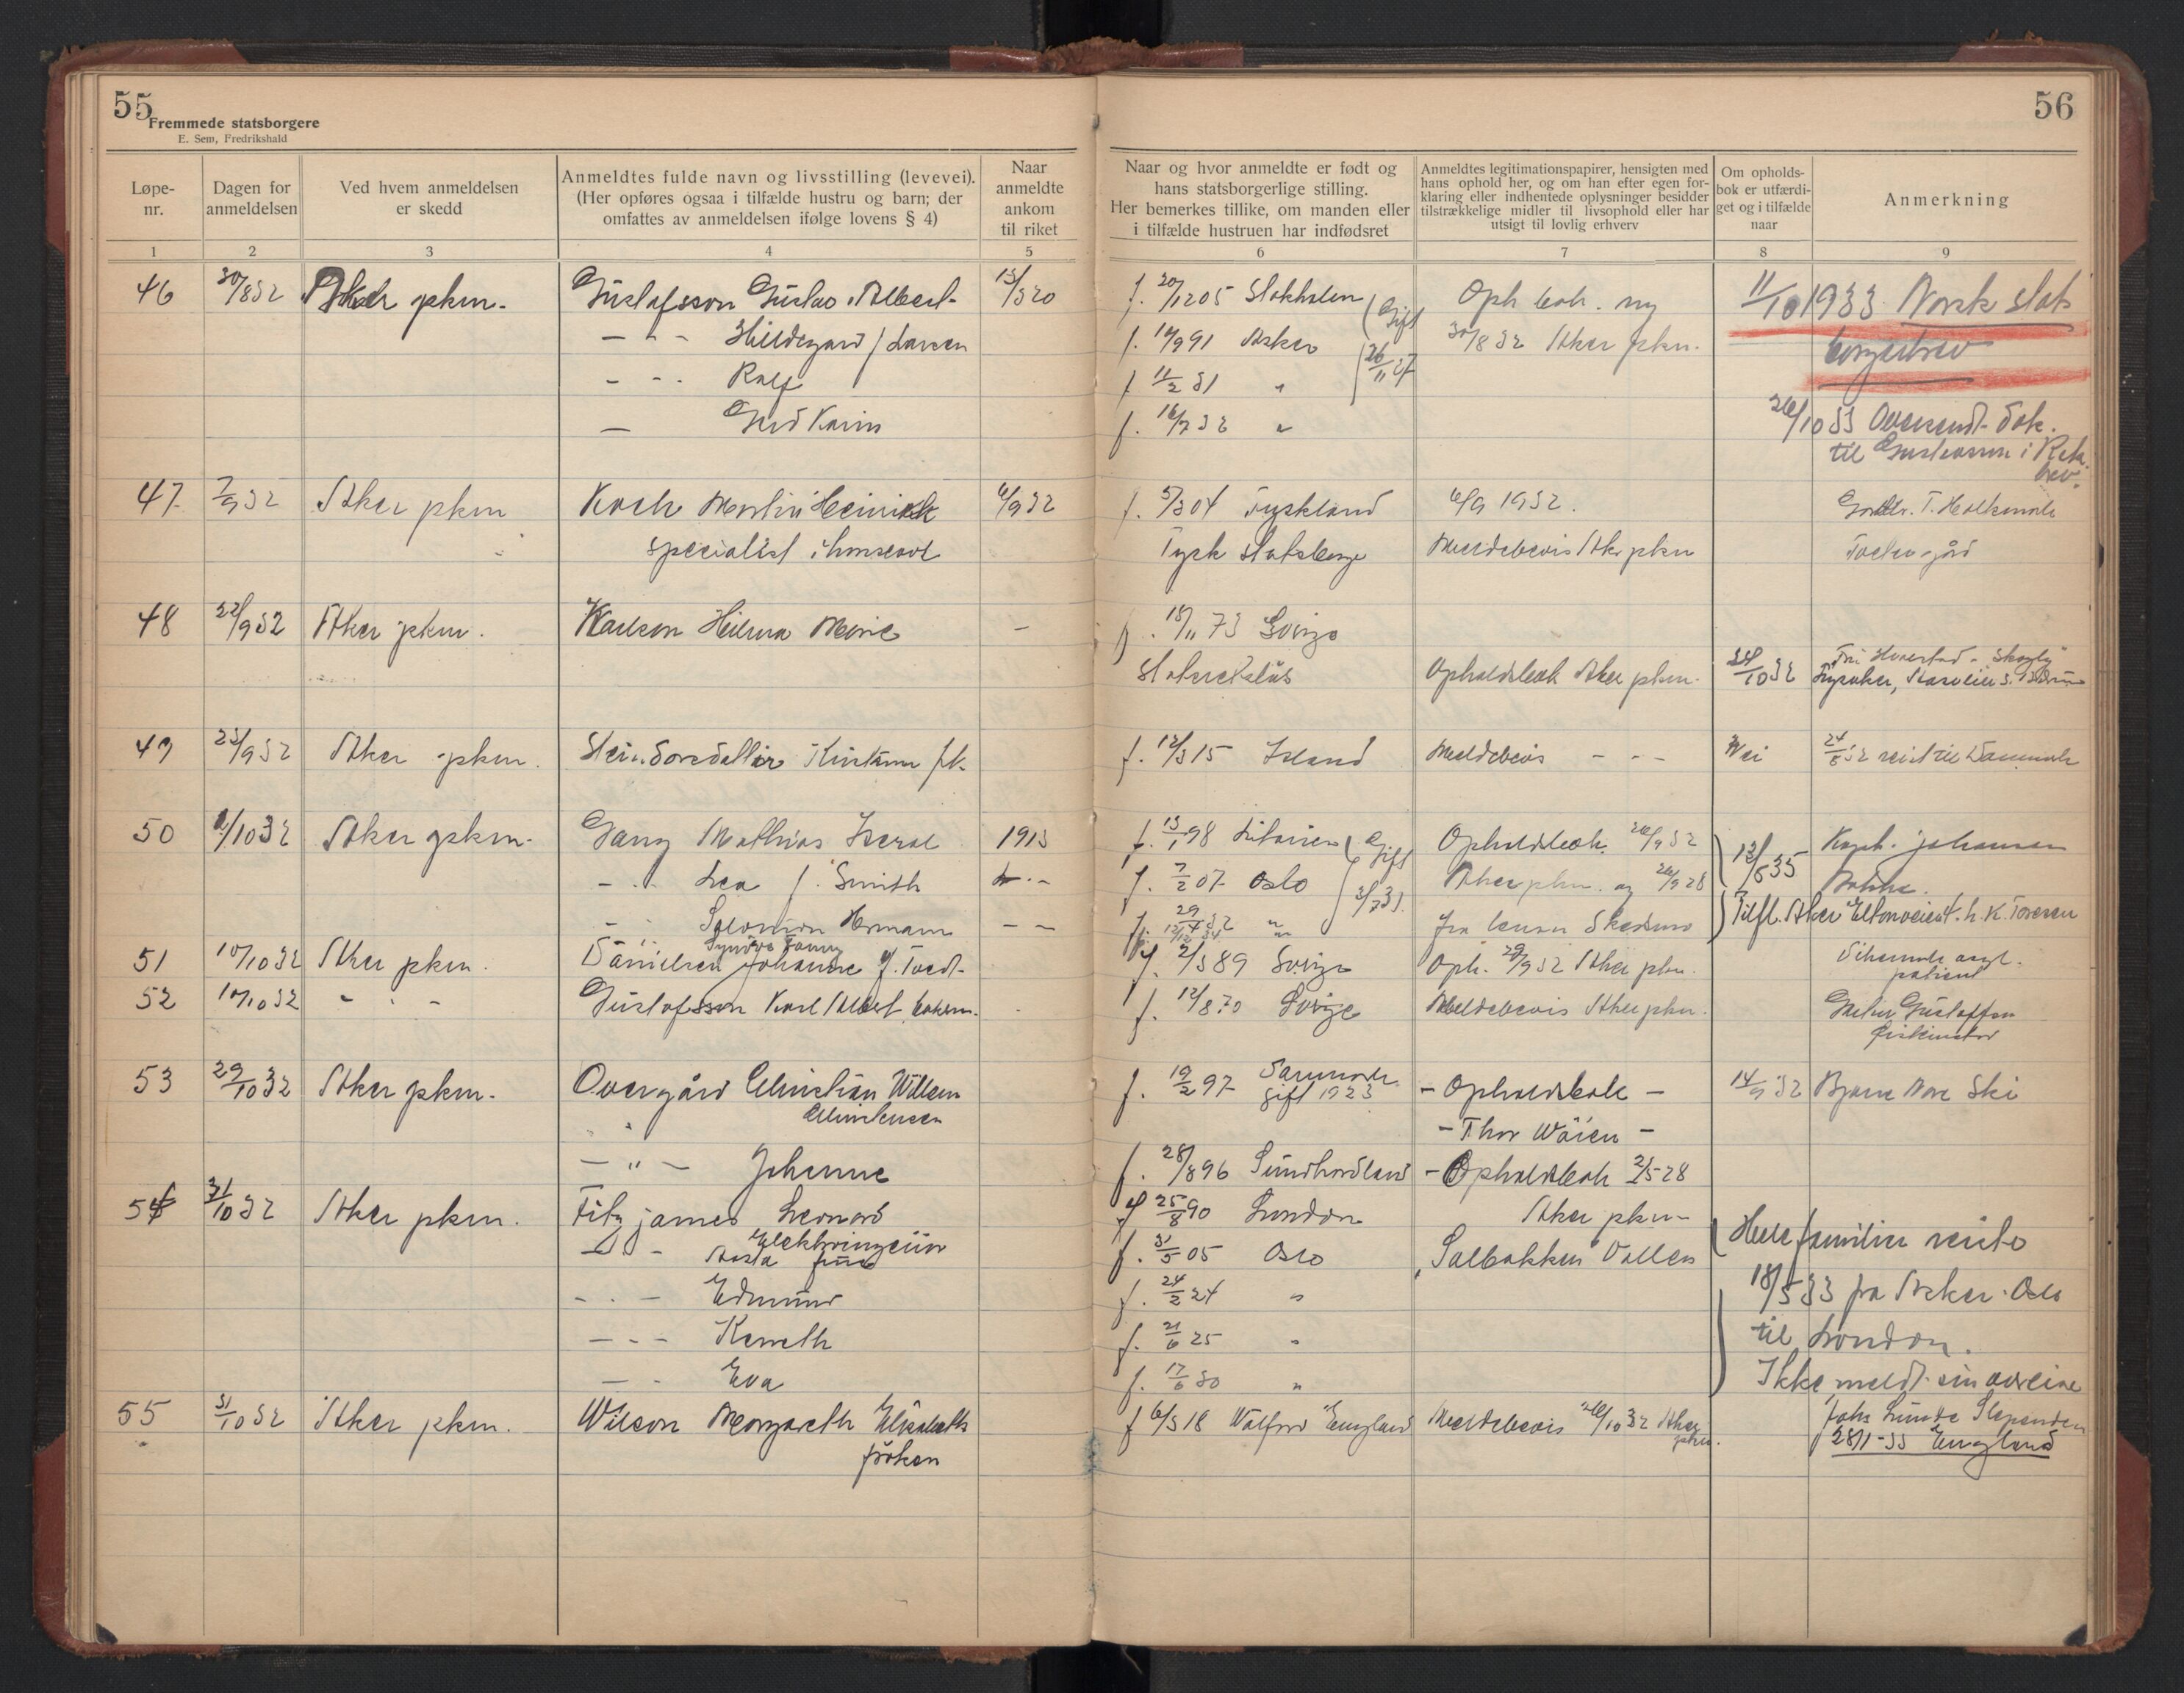 55
Fremmede statsborgere
E. Sem, Fredrikshald
Løpe-
nr.
Dagen for
anmeldelsen
Ved hvem anmeldelsen
er skedd
Anmeldtes fulde navn og livsstilling (levevei).
(Her opføres ogsaa i tilfælde hustru og barn; der
omfattes av anmeldelsen ifølge lovens § 4)
Naar
anmeldte
ankom
til riket
1
2
3
4
5
46 30/8 32 Asker pkm. Gustafsson Gustav Albert 15/3 20
— " — Hildegard f. Larsen
— " — Rolf
— Gerd Karin
47. 7/9 32 Asker pkm Koch Martin Heinrich 6/9 32
specialist i
48 22/9 32 Asker pkm. Karlson Hilma Marie —
49 23/9 32 Asker pkm. Steinsdottir Kristine frk.
50 1/10 32 Asker pkm. Gang Mathias Iserol 1913
— " — Lea f. Smith — " —
— " — Salomon Herman — —
Synøve Fanny
51 10/10 32 Asker pkm. Danielsen Johanne f. Tvedt
52 10/10 32 — " — Gustafsson Karl Albert
53 29/10 32 Asker pkm. Overgård Christian Willem
Christensen
— " — Johanne
54 31/10 32 Asker pkm. Fitzjames Leonard
Elektringeniør
— " — Asta frue
— " — Edmund
— " — Kenneth
— " — Eva
55 31/10 32 Asker pkm. Wilson Margareth Elisabeth
frøken
56
Naar og hvor anmeldte er født og
hans statsborgerlige stilling.
Her bemerkes tillike, om manden eller
i tilfælde hustruen har indfødsret
Anmeldtes legitimationspapirer, hensigten med
hans ophold her, og om han efter egen for-
klaring eller indhentede oplysninger besidder
tilstrækkelige midler til livsophold eller har
utsigt til lovlig erhverv
Om opholds-
bok er utfærdi-
get og i tilfælde
naar
Anmerkning
6
7
8
9
f. 20/12 05 Stokholm Gift Oph bok. ny 11/10 1933 Norsk stats
f. 14/9 91 Asker 26/11 27 30/8 32 Asker pkm. borgerbrev
f. 11/2 31 "
f. 16/7 32 " 26/10 33 Oversendt dok.
til Gustavsson i Rek.
brev.
f. 5/3 04 Tyskland 6/9 1932. Godtlr. T. Holtsmark
Tysk statsborger Meldebevis Asker pkm
f. 18/11 73 Sverige
Statsløs Opholdsbok Asker pkm. 24/10 32
f. 12/3 15 Island Meldebevis — " — Nei 24/5 32 reist til Danmark
f. 13/1 98 Litauen Gift Opholdsbok. 26/9 32 12/6 35 Kapt. Johansen
f. 7/2 07 Oslo 3/7 31 Asker pkm. og 26/9 28
f. 29/4 32 " fra Skedsmo Tilfl. Asker Eltonveien 4. h. K. Toresen
f. 12/12 34 "
f. 2/3 89 Sverige Oph. 29/9 32 Asker pkm. Dikemark asyl.
patient
f. 12/8 70 Sverige Meldebevis Asker pkm. Gustaffson
f. 19/2 97 Danmark — Opholdsbok — 14/9 32 Bjarne Ski
gift 1923
— Thor Wøien —
f. 28/8 96 Sundhordland — Opholdsbok 2/5 28
f. 25/8 90 London Asker pkm
f. 31/5 05 Oslo "Solbakken" Vollen Hele familien reiste
f. 24/2 24 " 18/5 33 fra Asker - Oslo
f. 21/6 25 " til London.
f. 17/6 30 " Ikke meldt sin avreise
f. 6/3 18 England Meldebevis 26/10 32 Asker Johs Lunde Slependen
pkm. 28/1-33 England